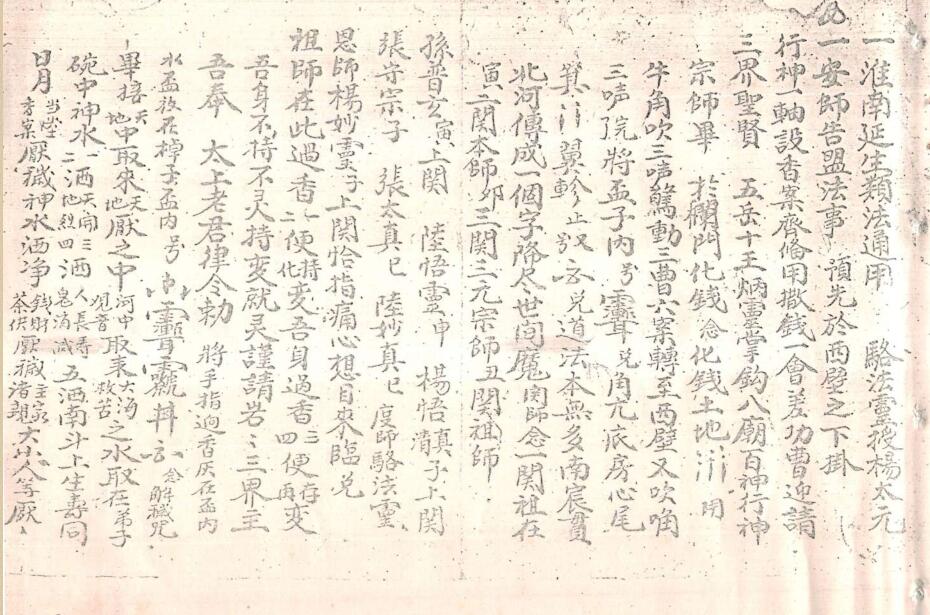 一淮南延生類法通用　駱法靈授楊太元
一安師告盟法事　預先於西壁之下掛
行神一軸設香案齊備用撒錢一會差功曹迎請
三界聖賢　五岳十王炳靈掌鈎八廟百神行神
宗師畢　於棚門化錢念化錢土地　用
牛角吹三声驚動三曹六案轉至西壁又吹角
三声完將盂子內号靈　角亢底房心尾
箕　翼軫止　云　道法本無多南宸貫
北河傳成一個字降尽世间魔　師念一関祖在
寅二関本師卯三関三元宗師丑関祖師
孫普玄寅上関　陸悟靈申　楊悟真子上関
張守宗子　張太真巳　陸妙真巳　度師駱法靈
恩師楊妙靈子上関恰指痛心想目來臨
祖師在此過香一便持变吾身過香三便存变
吾身不持不灵持变就灵謹請岩三界主
吾奉　太上老君律令勅　將手指過香灰在盂內
水盂放在棹子盂內号　云念解穢咒
畢接天地中取來天地厭之中河中取来大海之水取在弟子
碗中神水一洒天開二地烈三洒人長寿四鬼消滅五洒南斗上生壽同
日月當堂香案厭穢神水洒净錢財茶供厭穢主家諸親大小人等厭